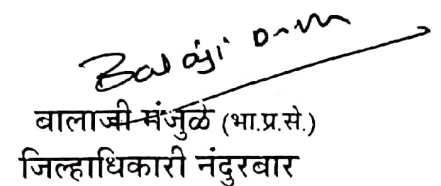 Balaji
बालाजी मंजुळे (भा.प्र.से.)
जिल्हाधिकारी नंदुरबार